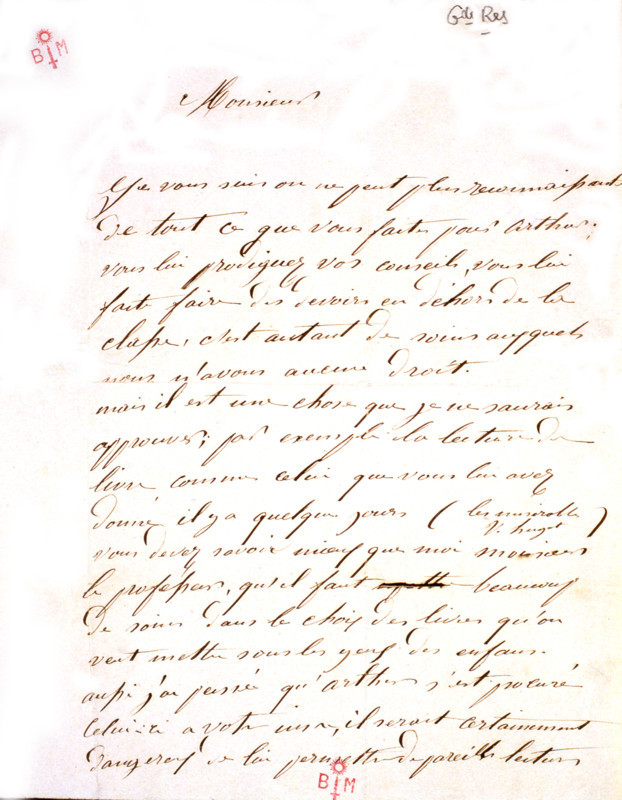 Gde Res
B M
Monsieur
Je vous suis on ne peut plus reconnaissante
de tout ce que vous faites pour arthur;
vous lui prodiguez vos conseils, vous lui
faite faire des devoirs en déhors de la
classe, c'est autant de soins auxquels
nous n'avons aucune droit.
mais il est une chose que je ne saurais
approuver; par exemple la lecture de
livre comme celui que vous lui avez
donné il y a quelque jours (les misérables
V. hugot)
vous devez savoir mieux que moi monsieur
le professeur, qu'il faut beaucoup
de soins dans le choix des livres qu'on
veut mettre sous les yeux des enfans.
aussi j'ai pensé qu'arthur s'est procuré
celui-ci a votre insu, il serait certainement
dangereux de lui permettre de pareille lectures
B M